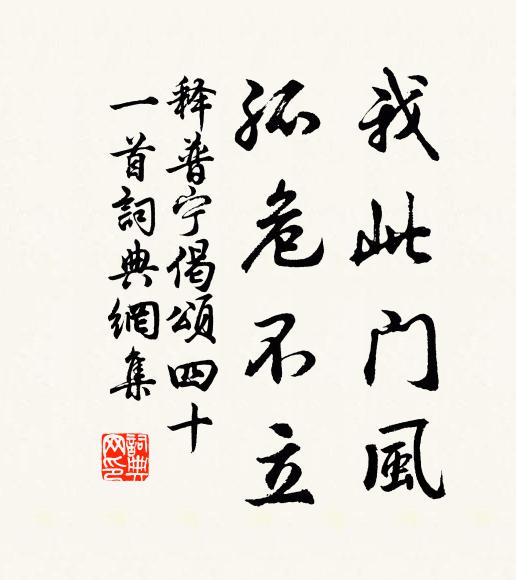 我此门風
孤危不立
释普宁偈頌四十
一首詞典網集
詞典
网印